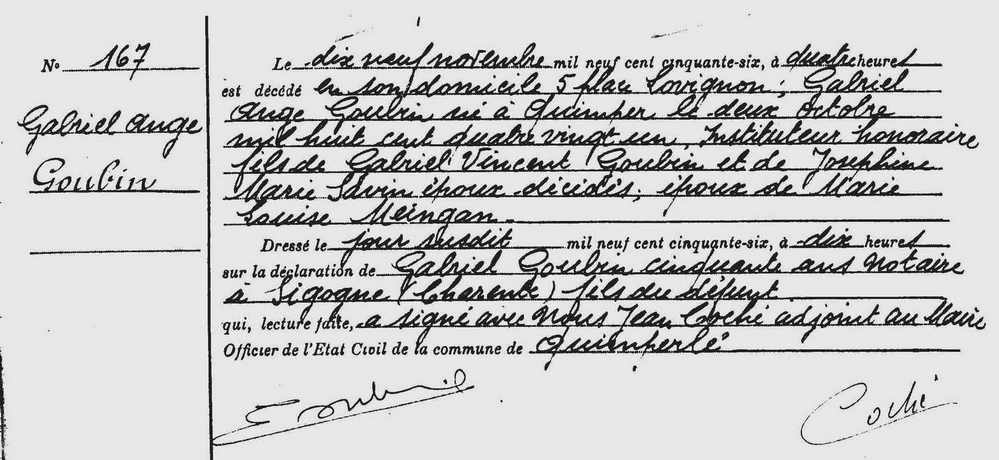 N° 167
Gabriel Ange
Goubin
Le dix neuf novembre mil neuf cent cinquante-six, à quatre heures
est décédé en son domicile 5 place Lovignon ; Gabriel
Ange Goubin né à Quimper le deux octobre
mil huit cent quatre vingt un, Instituteur honoraire
fils de Gabriel Vincent Goubin et de Josephine
Marie Savin époux décédés, époux de Marie
Louise Meingan.
Dressé le jour susdit mil neuf cent cinquante-six, à dix heures
sur la déclaration de Gabriel Goubin cinquante ans Notaire
à Sigogne (Charente) fils du défunt
qui, lecture faite, a signé avec Nous Jean Coché adjoint au Maire
Officier de l'Etat Civil de la commune de Quimperlé
Goubin
Coché